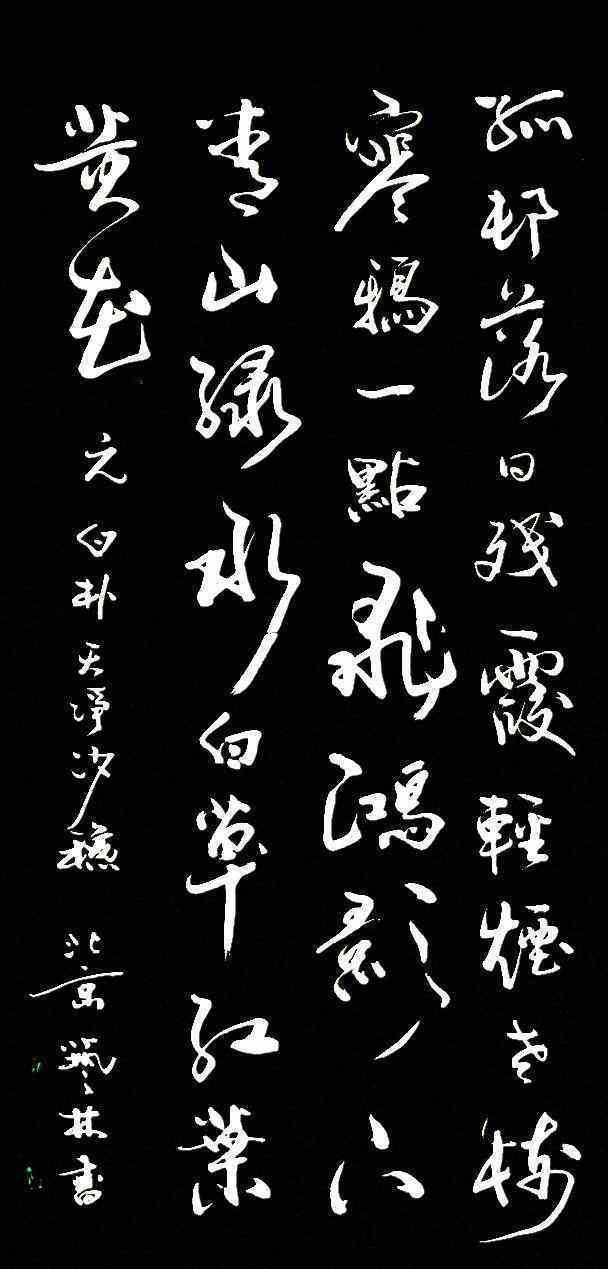 孤邨落日残霞輕煙老樹
寒鴉一點飛鴻影下
青山綠水白草紅葉
黃花 元白朴天淨沙 北京 林書